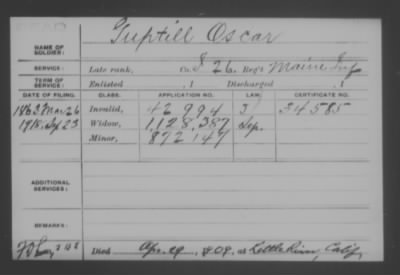 Guptill Oscar
NAME OF
SOLDIER:
SERVICE: Late rank, Co. I 26 Reg't Maine Inf
TERM OF
SERVICE: Enlisted , 1 Discharged , 1
DATE OF FILING. CLASS. APPLICATION NO. LAW. CERTIFICATE NO.
1863 Mar 26 Invalid, 42,994 34585
1918, 23 Widow, 1,128,387
Minor, 872,147
ADDITIONAL
SERVICES:
REMARKS:
Died Apr. 29, 09, at Little River, Calif,